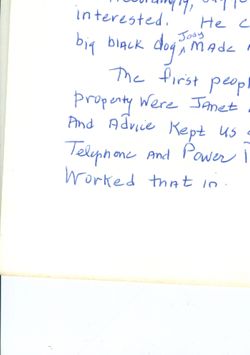 Accordingly,
interested. He c
big black dog, Joey MADE
The first peopl
property were JANET
And Advice Kept us
Telephone And Power
Worked that in.